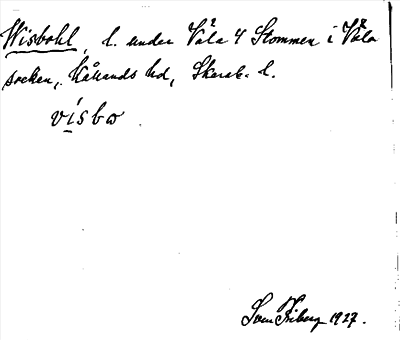 Wisbohl, l. under Våla 4 Stommen i Våla
socken, Kållands hd, Skarab. l.
vísbω.
Sven Friberg 1927.